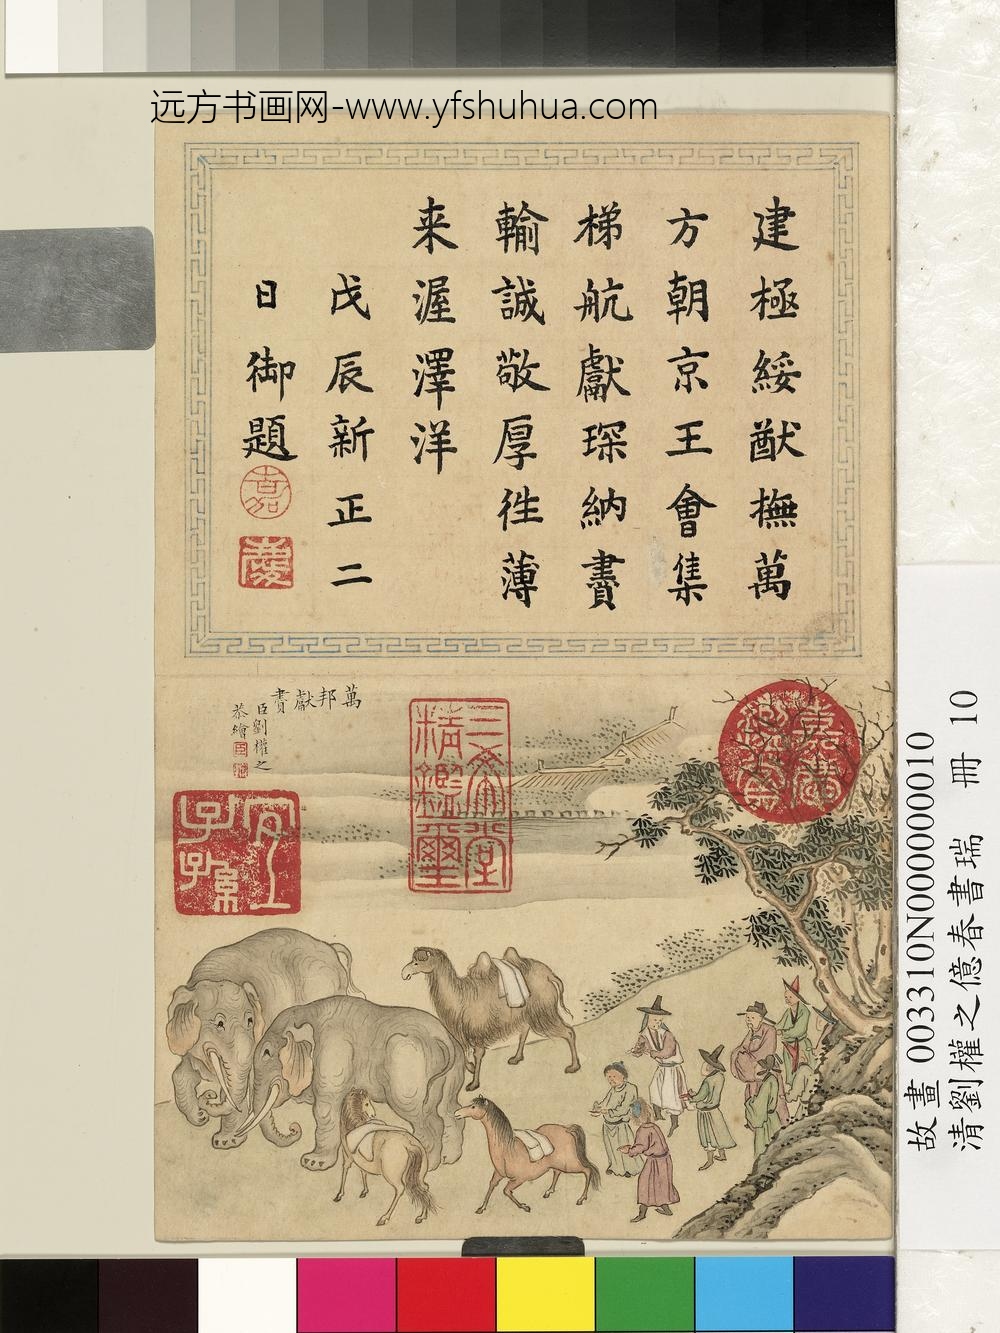 远方书画网-www.yfshuhua.com
建極綏猷撫萬
方朝京王會集
梯航獻琛納賮
輸誠敬厚徃薄
来渥澤洋
戊辰新正二
日御題
嘉
慶
萬邦獻賮
臣劉權之
恭繪
三希堂
精鑑璽
宜子孫
嘉慶鑑賞
故畫 003310N000000010
清劉權之億春書瑞 冊 10